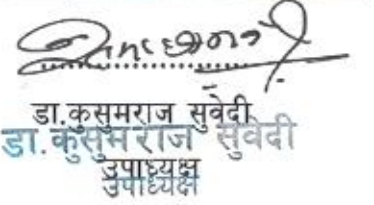 डा.कुसुमराज सुवेदी
डा.कुसुम राज सुवेदी
उपाध्यक्ष
उपाध्यक्ष